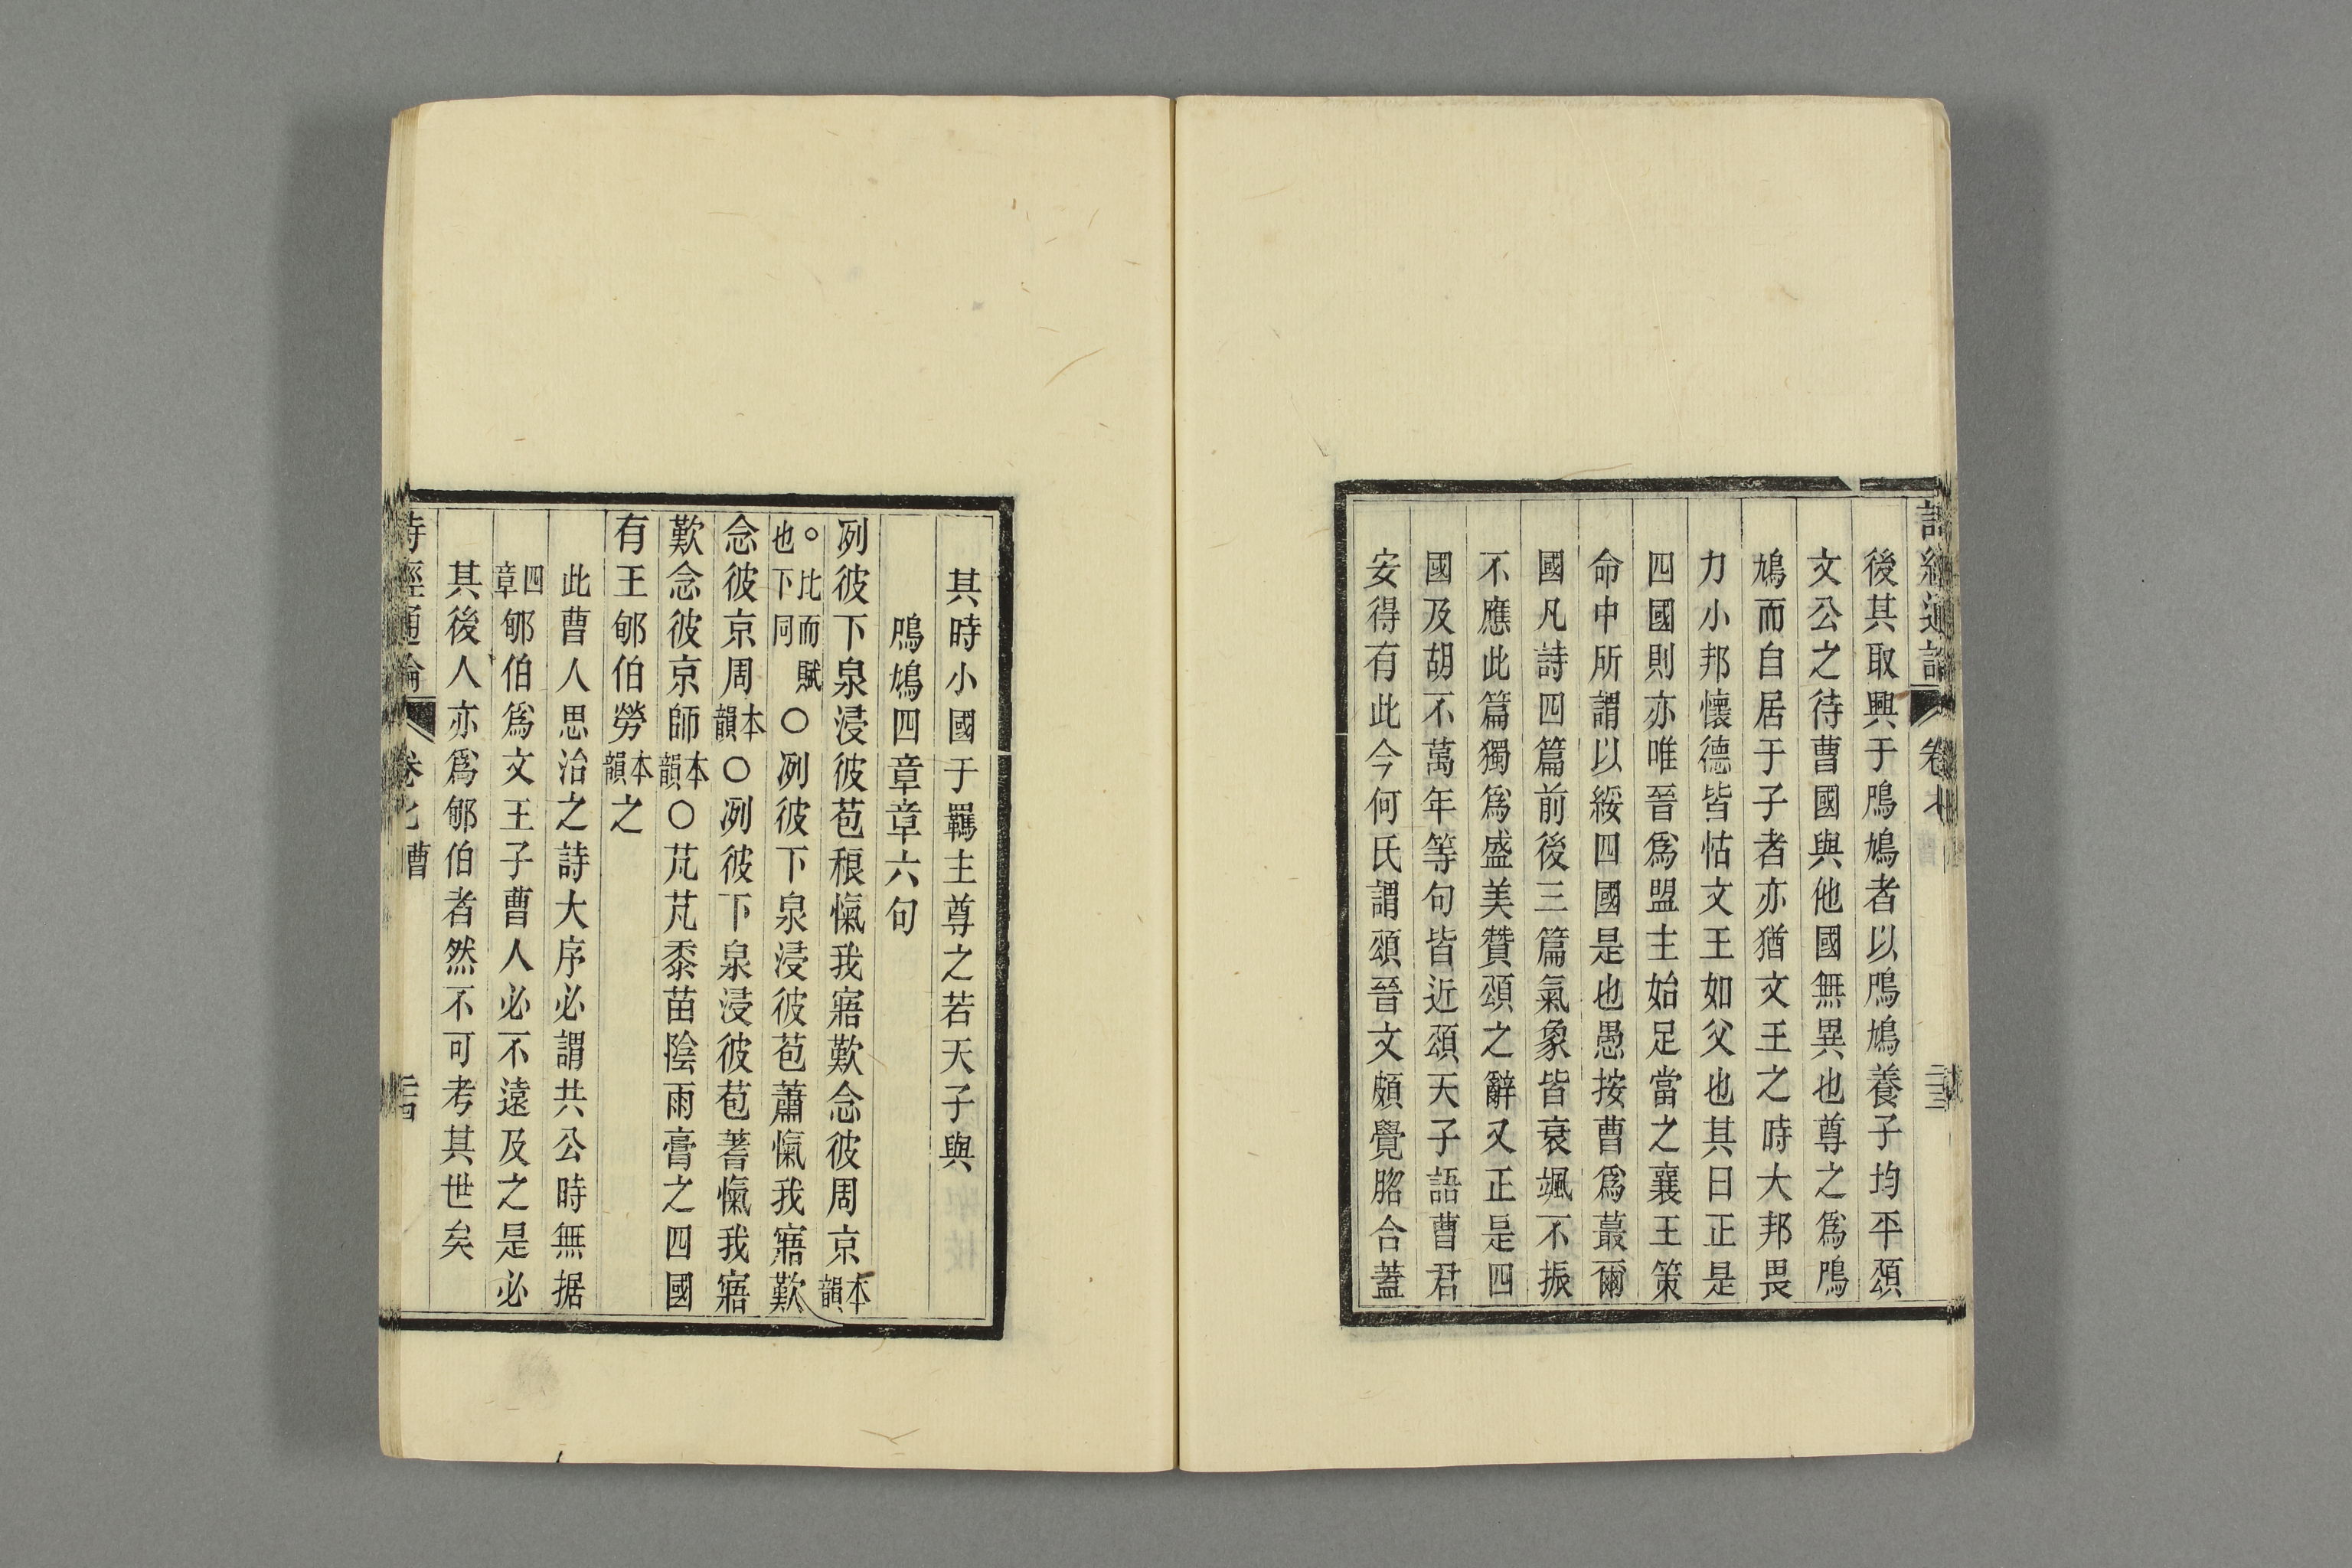 詩經通論 卷七 二十三
後其取興于鳲鳩者以鳲鳩養子均平頌
文公之待曹國與他國無異也尊之爲鳲
鳩而自居于子者亦猶文王之時大邦畏
力小邦懷德皆怙文王如父也其曰正是
四國則亦唯晉爲盟主始足當之襄王策
命中所謂以綏四國是也愚按曹爲蕞爾
國凡詩四篇前後三篇氣象皆衰颯不振
不應此篇獨爲盛美贊頌之辭又正是四
國及胡不萬年等句皆近頌天子語曹君
安得有此今何氏謂頌晉文頗覺脗合蓋
其時小國于羈主尊之若天子與
鳲鳩四章章六句
冽彼下泉浸彼苞稂愾我寤歎念彼周京本韻
○比而賦也下同○冽彼下泉浸彼苞蕭愾我寤歎
念彼京周本韻○冽彼下泉浸彼苞蓍愾我寤
歎念彼京師本韻○芃芃黍苗陰雨膏之四國
有王郇伯勞本韻之
此曹人思治之詩大序必謂共公時無据
四章郇伯爲文王子曹人必不遠及之是必
其後人亦爲郇伯者然不可考其世矣
詩經通論 卷七曹 二十四